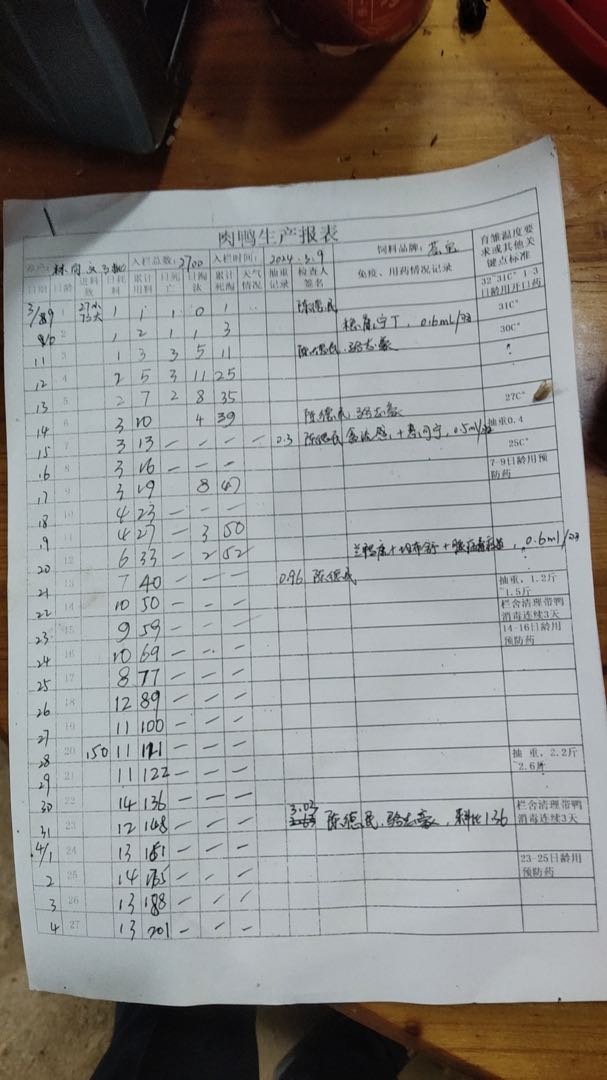 肉鸭生产报表
入栏总数：2700 入栏时间：2024.3.9 饲料品牌：
日期 日龄 进料数 日耗料 累计用料 日死亡 日淘汰 累计死淘 天气情况 抽重记录 检查人签名 免疫、用药情况记录 育雏温度要求或其他关键点标准
32-31C° 1-3日龄用开口药
1 1 1 1 0 1 陈德民 31C°
2 1 2 1 1 3 0.6ml/羽 30C°
11 3 1 3 3 5 11 陈德民
12 4 2 5 3 11 25
13 5 2 7 2 8 35 27C°
14 6 3 10 4 39 陈德民
15 7 3 13 — — — — 0.3 陈德民 0.5ml/羽 抽重0.4
16 8 3 16 — — — 25C°
17 9 3 19 8 47 7-9日龄用预防药
18 10 4 23 — — —
19 11 4 27 — 3 50
20 12 6 33 — 2 52 0.6ml/羽
21 13 7 40 — — — 0.96 陈德民 抽重，1.2斤~1.5斤
22 14 10 50 — — — 栏舍清理带鸭消毒连续3天
23 15 9 59 — — — 14-16日龄用预防药
24 16 10 69 — — —
25 17 8 77 — — —
26 18 12 89 — — —
27 19 11 100 — — —
28 20 150 11 111 — — — 抽重，2.2斤~2.6斤
29 21 11 122 — — —
30 22 14 136 — — —
31 23 12 148 — — — 3.03 陈德民 料比136 栏舍清理带鸭消毒连续3天
4/1 24 13 161 — — —
2 25 14 175 — — — 23-25日龄用预防药
3 26 13 188 — — —
4 27 13 201 — — —